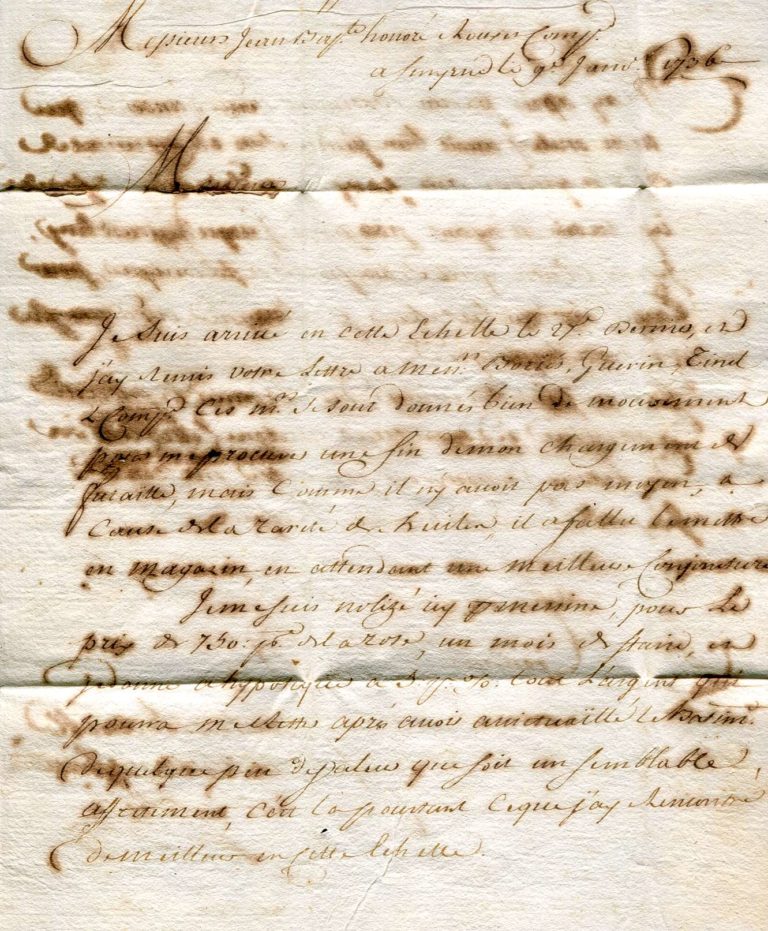 Messieurs Jean Bap.te honoré Roux & Comp.e
a Smyrne le 9e Janv.r 1736
Messieurs
Je suis arrivé en cette Echelle le 27e, et
j'ay Remis votre Lettre a Mess.rs Guerin, Tinel
& Comp.e Ces m.rs se sont donnés bien de mouvement
pour me procurer une fin de mon chargement de
futaille, mais Comme il n'y avoit pas moyen, a
Cause de la rareté de huiles, il a fallu le mettre
en magazin, en attendant une meilleure Conjoncture
Je me suis nolizé icy pour le
prix de 750 un mois de, et
donné a hypoteque a 3 p.r % tout L'argent qui
pourra m'estre aprés avoir avictuaillé le Bastim.t
De quelque peu de valeur que soit un semblable
affretement, c'est la pourtant ce que j'ay Rencontré
de meilleur en Cette Echelle.